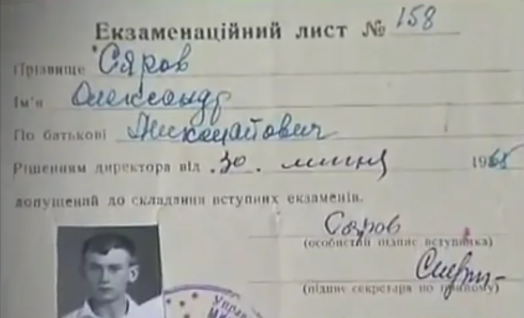 Екзаменаційний лист № 158
Прізвище Сяров
Ім'я Олександр
По батькові Миколайович
Рішенням директора від 30. липня 1965
допущений до складання вступних екзаменів.
Сяров
(особистий підпис вступника)
(підпис секретаря по прийому)
Управ